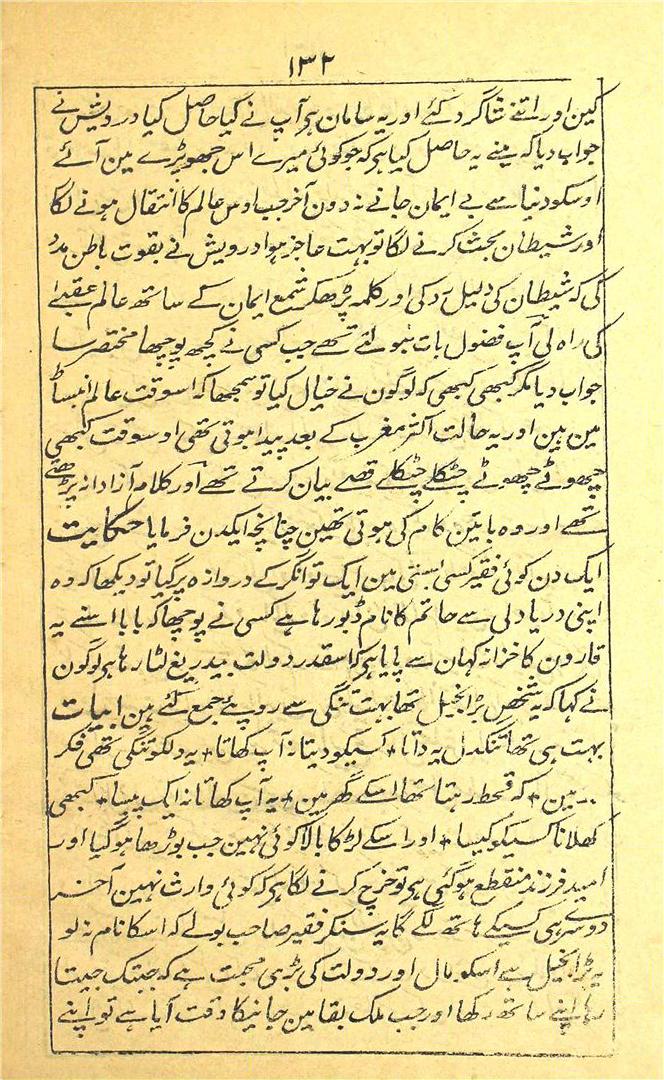 ۱۳۲
کین اور اتنے شاگرد کئے اور یہ سامان ہو آپ نے کیا حاصل کیا درویش نے
جواب دیا کہ مینے یہ حاصل کیا ہو کہ جو کوئی میرے اس جھوپڑے مین آئے
اوسکو دنیا سے بے ایمان جانے نہ دون آخر جب اوس عالم کا انتقال ہونے لگا
اور شیطان بحث کرنے لگا تو بہت عاجز ہوا درویش نے بقوت باطن مدد
کی کہ شیطان کی دلیل رد کی اور کلمہ پڑھکر شمع ایمان کے ساتھ عالم عقبےٰ
کی راہ لی آپ فضول بات نہ بولتے تھے جب کسی نے کچھ پوچھا مختصر سا
جواب دیا مگر کبھی کبھی کہ لوگون نے خیال کیا تو سمجھا کہ اسوقت عالم انبساط
مین ہین اور یہ حالت اکثر مغرب کے بعد پیدا ہوتی تھی اوسوقت کبھی
چھوٹے چھوٹے چٹکلے چٹکلے قصے بیان کرتے تھے اور کلام آزادانہ پڑھتے
تھے اور وہ باتین کام کی ہوتی تھین چنانچہ ایکدن فرمایا حکایت
ایک دن کوئی فقیر کسی بستی مین ایک توانگر کے دروازہ پر گیا تو دیکھا کہ وہ
اپنی دریا دلی سے حاتم کا نام ڈبو رہا ہے کسی نے پوچھا کہ بابا اسنے یہ
قارون کا خزانہ کہان سے پایا ہو کہ اسقدر دولت بیدریغ لٹا رہا ہو لوگون
نے کہا کہ یہ شخص بڑا بخیل تھا بہت تنگی سے روپئے جمع کئے ہین ابیات
بہت ہی تھا تنگدل یہ داتا + کسیکو دیتا نہ آپ کھاتا + یہ دلکو تنگی تھی فکر
مین + کہ قحط رہتا تھا اسکے گھر مین + یہ آپ کھاتا نہ ایک پیسا + کبھی
کھلانا کسیکو کیسا + اور اسکے لڑکا بالا کوئی نہین جب بوڑھا ہو گیا اور
امید فرزند منقطع ہو گئی ہو تو خرچ کرنے لگا ہو کہ کوئی وارث نہین آخر
دوسرے ہی کسیکے ہاتھ لگے گا یہ سنکر فقیر صاحب بولے کہ اسکا نام نہ لو
یہ بڑا بخیل ہے اسکو مال اور دولت کی بڑی محبت ہے کہ جبتک جیتا
رہا اپنے ساتھ رکھا اور جب ملک بقا مین جانیکا وقت آیا ہے تو اپنے